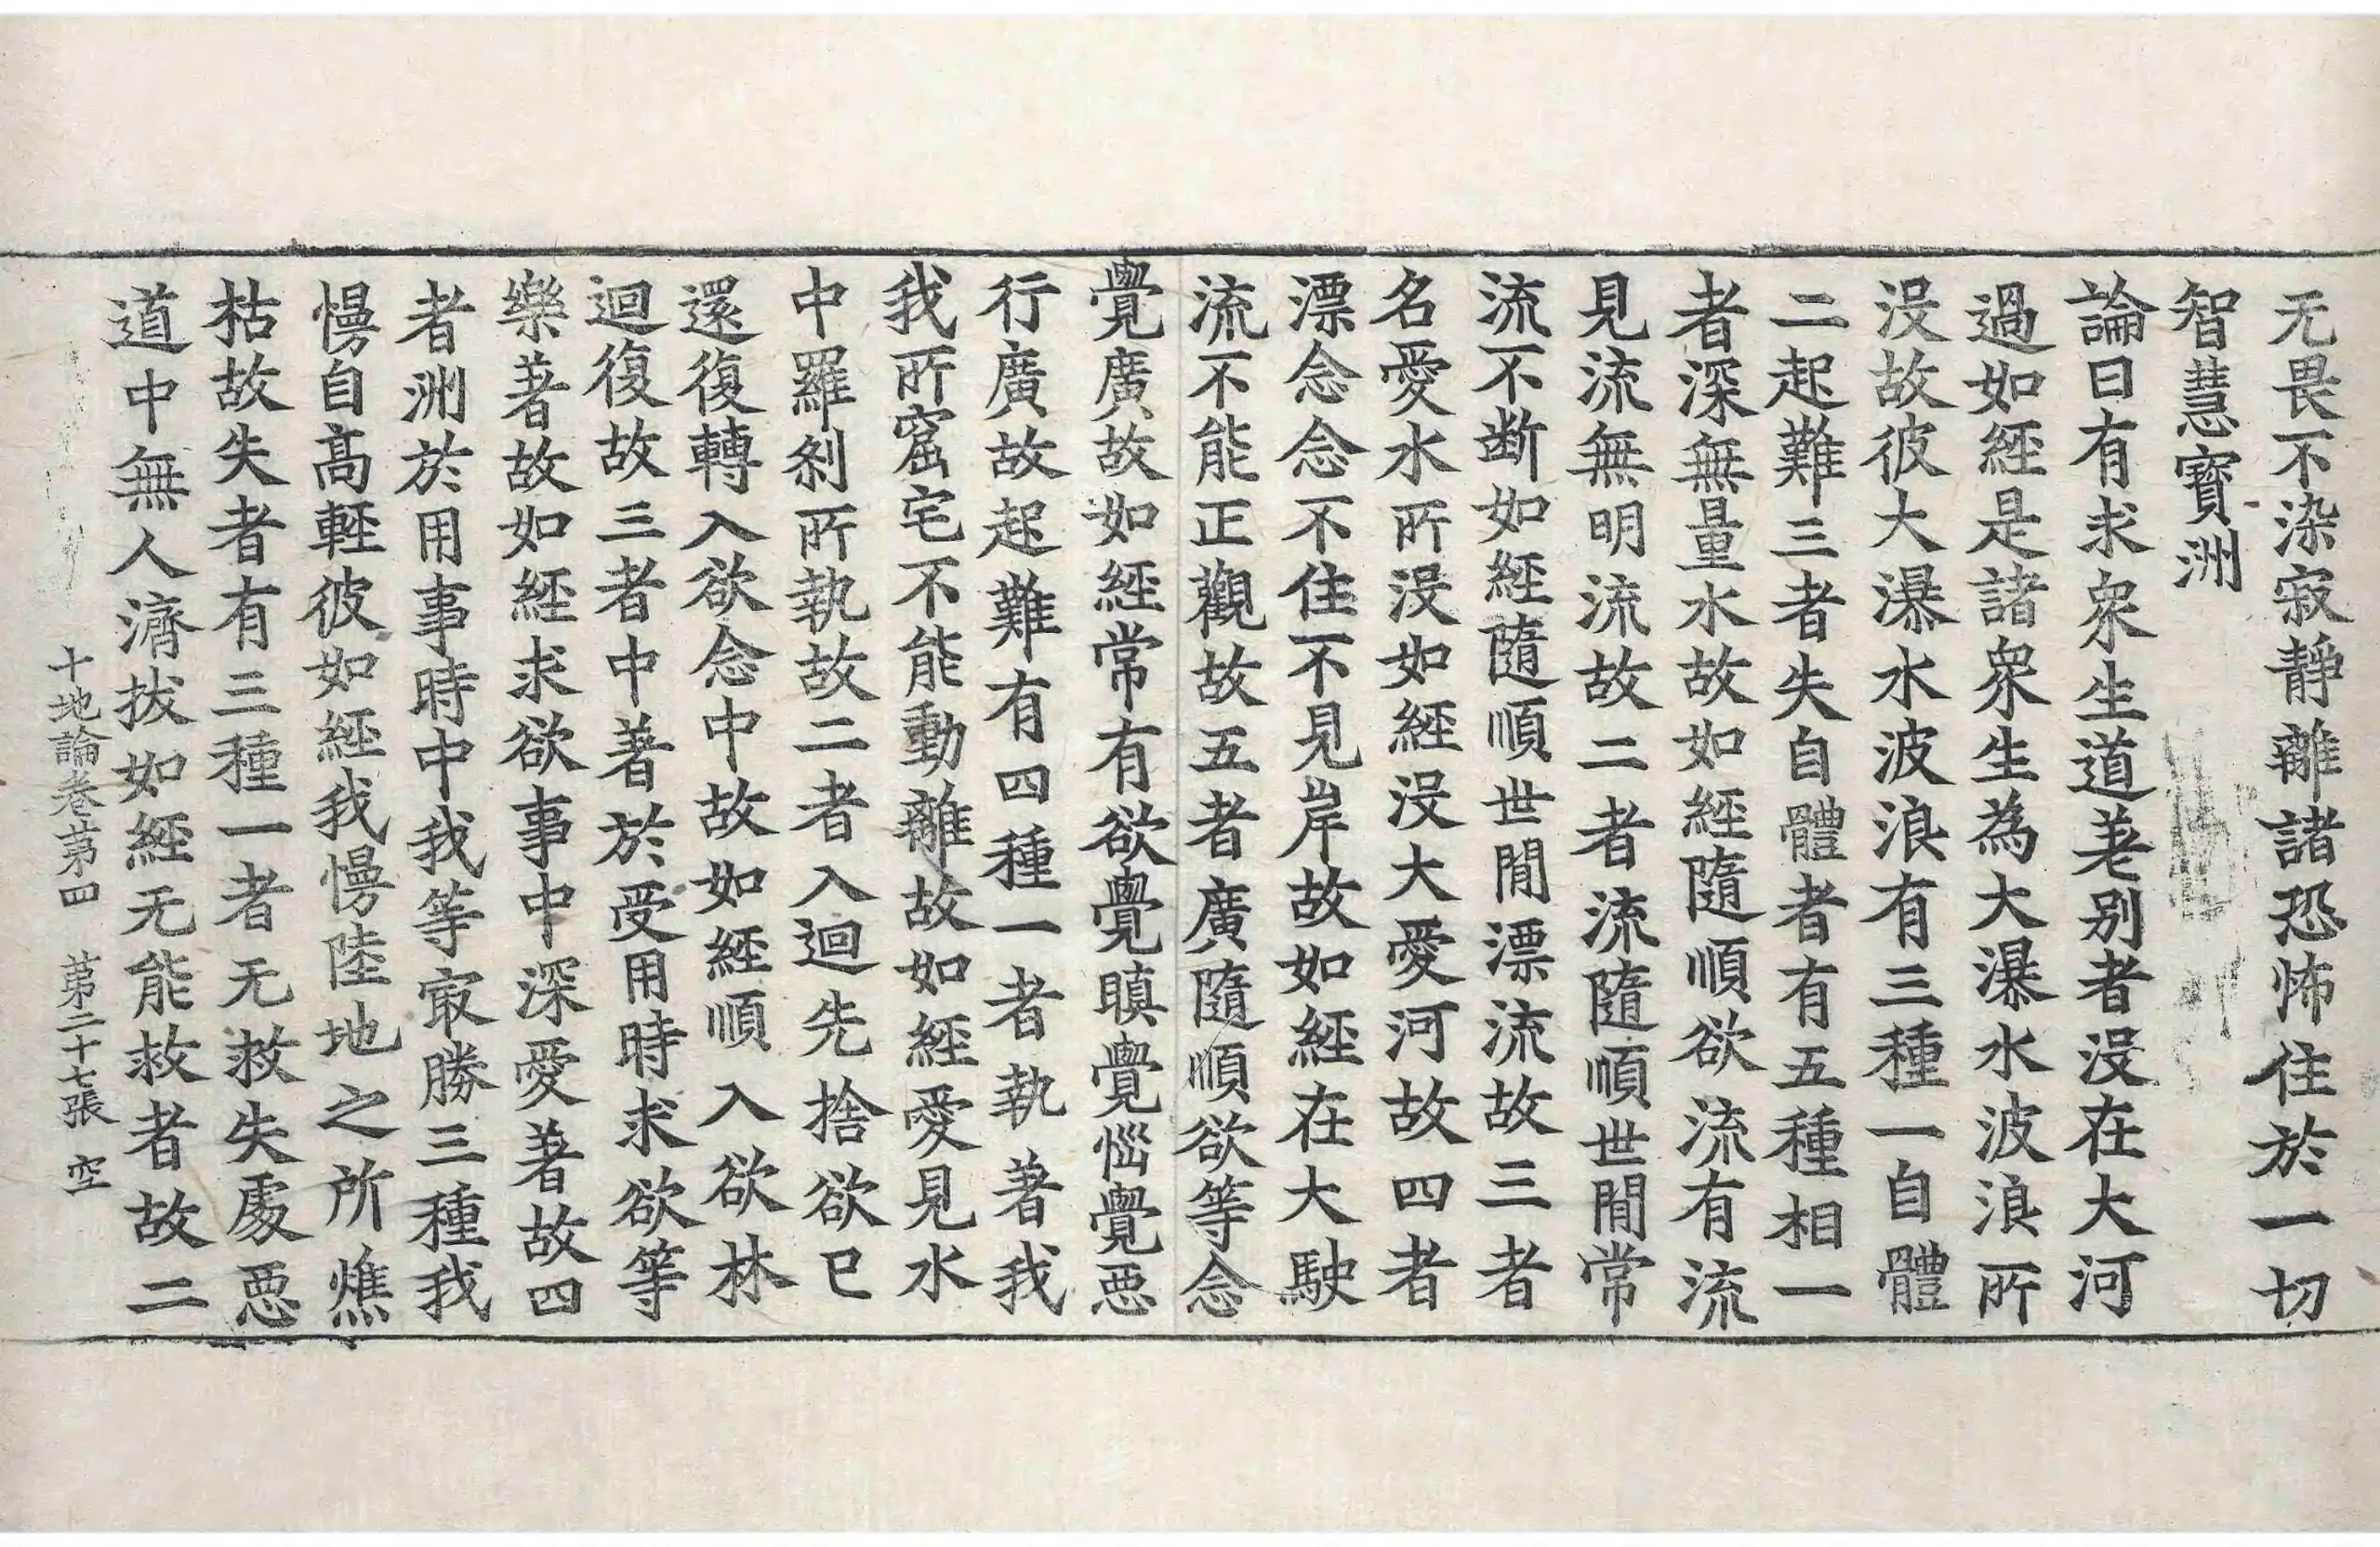 无畏不染寂靜離諸恐怖住於一切
智慧寶洲
論曰有求衆生道差别者没在大河
過如經是諸衆生為大瀑水波浪所
没故彼大瀑水波浪有三種一自體
二起難三者失自體者有五種相一
者深無量水故如經隨順欲流有流
見流無明流故二者流隨順世閒常
流不断如經隨順世閒漂流故三者
名愛水所没如經没大愛河故四者
漂念念不住不見岸故如經在大駛
流不能正觀故五者廣隨順欲等念
覺廣故如經常有欲覺瞋覺惱覺惡
行廣故起難有四種一者執著我
我所窟宅不能動離故如經愛見水
中羅刹所執故二者入迴先捨欲已
還復轉入欲念中故如經順入欲林
迴復故三者中著於受用時求欲等
樂著故如經求欲事中深愛著故四
者洲於用事時中我等㝡勝三種我
慢自高輕彼如經我慢陸地之所燋
枯故失者有三種一者无救失處惡
道中無人濟拔如經无能救者故二
十地論卷第四 第二十七張 空